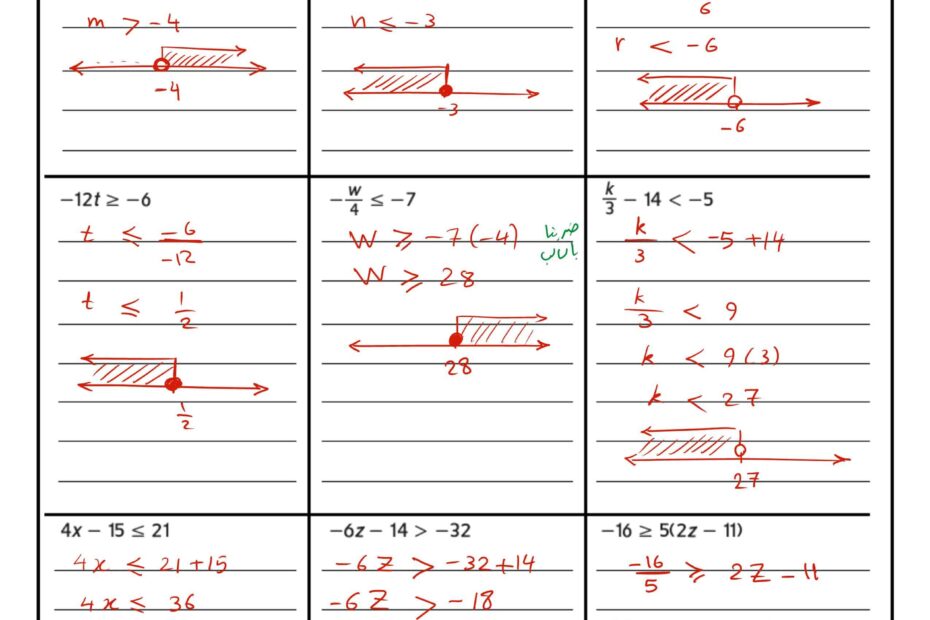 m > -4
-4
n ≤ -3
-3
6
r < -6
-6
-12t ≥ -6
t ≤ -6/-12
t ≤ 1/2
1/2
-w/4 ≤ -7
W ≥ -7(-4) ضربنا
بالسالب
W ≥ 28
28
k/3 - 14 < -5
k/3 < -5+14
k/3 < 9
k < 9(3)
k < 27
27
4x - 15 ≤ 21
4x ≤ 21+15
4x ≤ 36
-6z - 14 > -32
-6Z > -32+14
-6Z > -18
-16 ≥ 5(2z - 11)
-16/5 ≥ 2Z - 11